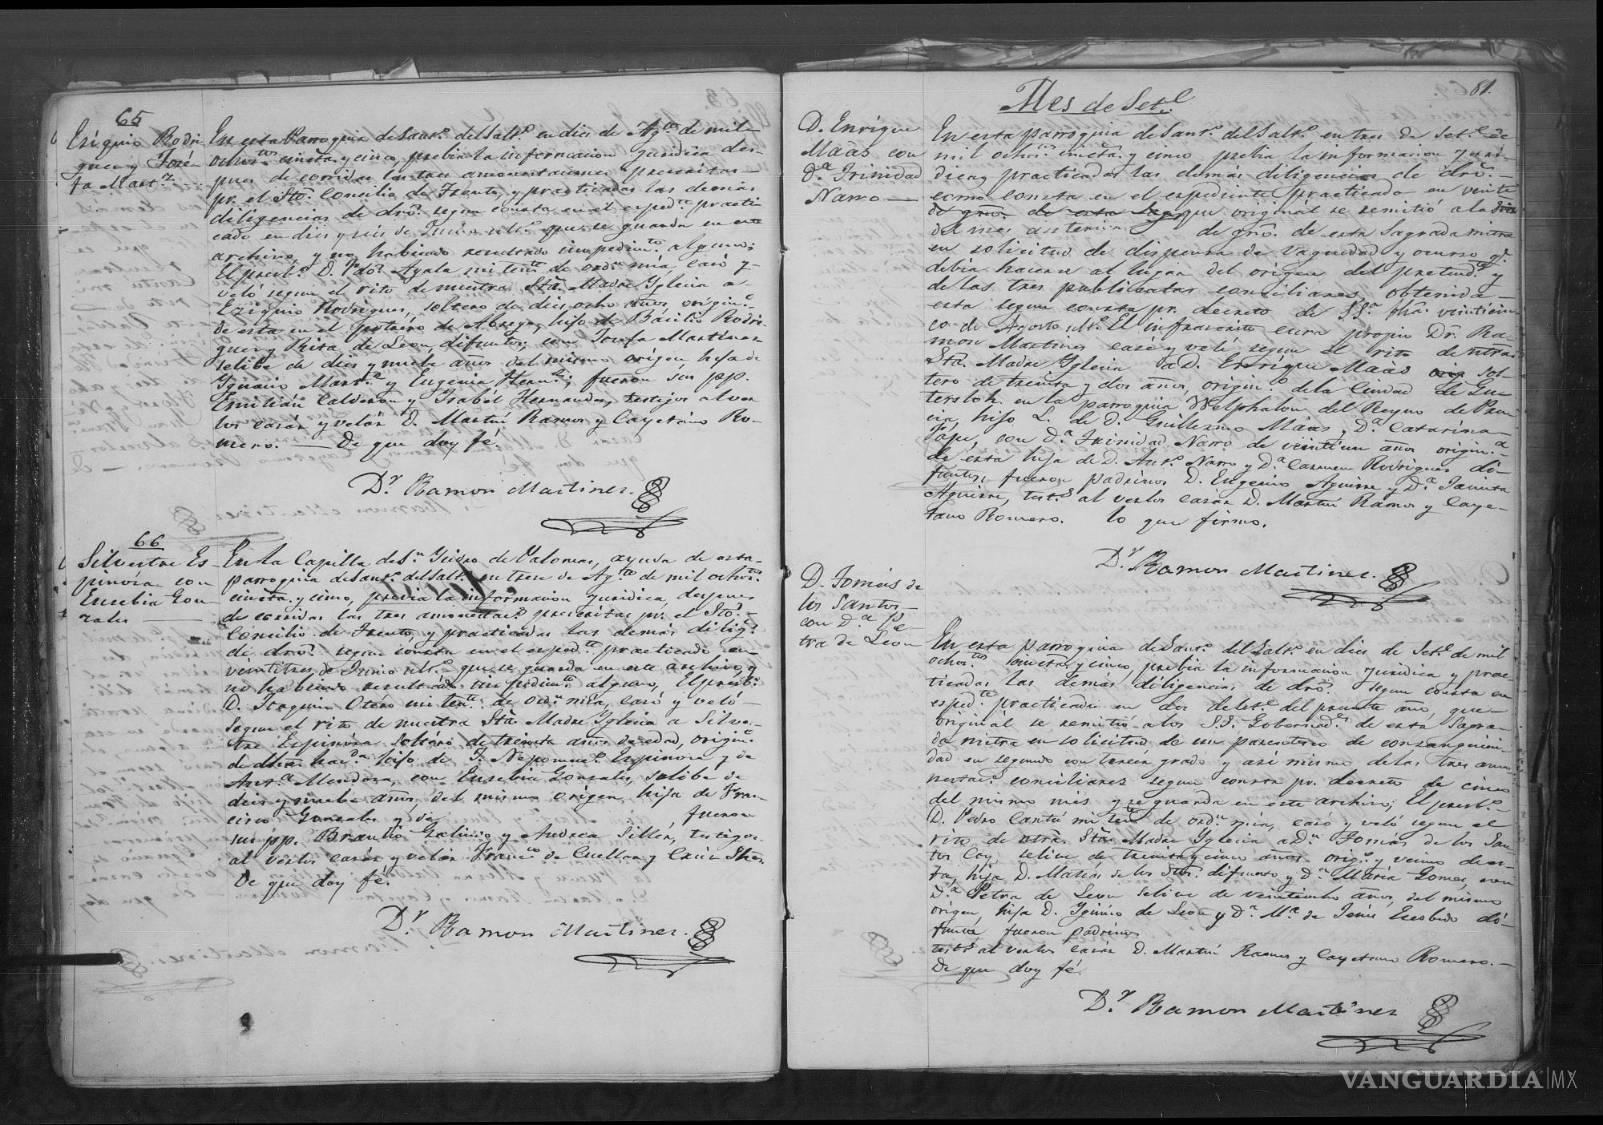 65
Eziquio Rodri
guez y José
fa Mart.z
En esta Parroquia de Sant.o del Salt.o en dies de Ag.to de mil
ochos.tos cincta. y cinco, prebia la informacion juridica des
pues de corridas las tres amonestaciones prescritas
pr. el Sto. Concilio de Trento, y practicadas las demas
diligencias de dro. segun consta en el exped.te practi
cado en dies y seis de Junio ult.o que se guarda en este
archivo, y no habiendo resultado impedim.to alguno;
el presb.o D. Ayala mi ten.te de ord.n mia, casó y
veló segun el rito de nuestra Sta. Madre Yglesia a
Eziquio Rodrigues, soltero de dies ocho años, origin.o
de esta en el potrero de Abrego, hijo de Basilio Rodri
guez y Rita de Leon, difuntos; con Josefa Martinez
selibe de dies y nueve años, del mismo origen hija de
Ygnacio Mart.z y Eugenia Hern.z; fueron sus pp.
Emilian Calderon y Ysabel Hernandez, testigos al ver
los casar y velar D. Martin Ramos y Cayetano Ro-
mero. — De que doy fé.
D.r Ramon Martinez.
66
Silvestre Es
pinóza con
Eusebia Gon
zales
En la Capilla de S.n Ysidro de Palomas, ayuda de esta
parroquia de Sant.o del Salt.o en trese de Ag.to de mil ochos.tos
cincta. y cinco, previa la informacion juridica, despues
de corridas las tres amonestac.s prescritas pr. el Sto.
Concilio de Trento y practicadas las demás dilig.s
de dro. segun consta en el exped.te practicado en
veintitres de Junio ult.o que se guarda en este archivo, y
no habiendo resultado impedim.to alguno, El presb.o
D. Joaquin Otero mi ten.te de ord.n mia, casó y veló
segun el rito de nuestra Sta. Madre Yglesia a Silves
tre Espinóza soltero de treinta años de edad, origin.o
de hijo de J. Nepomuc.o Espinoza y de
Ant.a Mendoza, con Eusebia Gonzales, selibe de
dies y nueve años, del mismo origen, hija de Fran
cisco Gonzales y de fueron
sus pp. Braulio Galindo y Andrea Siller, testigos
al verlos casar y velar Franc.o de Cuellar y
De que doy fé.
D.r Ramon Martinez.
81.
Mes de Set.e
D. Enrique
Maas con
D.a Trinidad
Narro
En esta parroquia de Sant.o del Salt.o en tres de Set.e de
mil ochos.tos cincta. y cinco prebia la informacion juri
dica y practicadas las demas diligencias de dro.
como consta en el expediente practicado en veinte
del mes anterior que original se remitió a la
de gno. de esta Sagrada mitra
en solicitud de dispensa de vaguedad y ocurso qe.
debia hacerse al lugar del origen del pretend.te y
de las tres publicatas conciliares, obtenida
esta segun consta pr. decreto de S.S.a fha. veinticin
co de Agosto ult.o El infrascrito cura propio Dr. Ra
mon Martinez casé y velé segun el rito de ntra.
Sta. Madre Yglesia a D. Enrique Maas sol
tero de treinta y dos años, origin.o de la Ciudad de Gue
tersloh en la parroquia Welphalon del Reyno de Pru
cia, hijo L. de D. Guillermo Maas y D.a Catarina
con D.a Trinidad Narro de veintiun años origin.a
de esta hija de D. Ant.o Narro y D.a Carmen Rodrigues di
funtos, fueron padrinos D. Eugenio Aguirre y D.a Jacinta
Aguirre, test.s al verlos casar D. Martin Ramos y Caye-
tano Romero. lo que firmo.
D.r Ramon Martinez.
D. Tomás de
los Santos
con D.a Pe
tra de Leon
En esta parroquia de Sant.o del Salt.o en dies de Set.e de mil
ochos.tos cincta. y cinco, prebia la informacion juridica y prac
ticadas las demás diligencias de dro. segun consta en
exped.te practicado en dos de Set.e del presente año, que
original se remitió a los S.S. Gobernad.s de esta Sagra
da mitra en solicitud de un parentesco de consanguini
dad en segundo con tercer grado y asi mismo de las tres amo
nestac.s conciliares segun consta pr. decreto de cinco
del mismo mes, y se guarda en este archivo; El presb.o
D. Pedro Cantú mi ten.te de ord.n mia, casó y veló segun el
rito de ntra. Sta. Madre Yglesia a D.n Tomás de los San
tos Coy, selibe de treinta y cinco años orig.o y vecino de es
ta, hijo D. Matias de los Stos. difunto y D.a Maria Gomes, con
D.a Petra de Leon selibe de veintiocho años, del mismo
origen, hija D. Iginio de Leon y D.a M.a de Jesus Escobedo di
funta fueron padrinos
test.s al verlos casar D. Martin Ramos y Cayetano Romero.
De que doy fé.
D.r Ramon Martinez
VANGUARDIA|MX